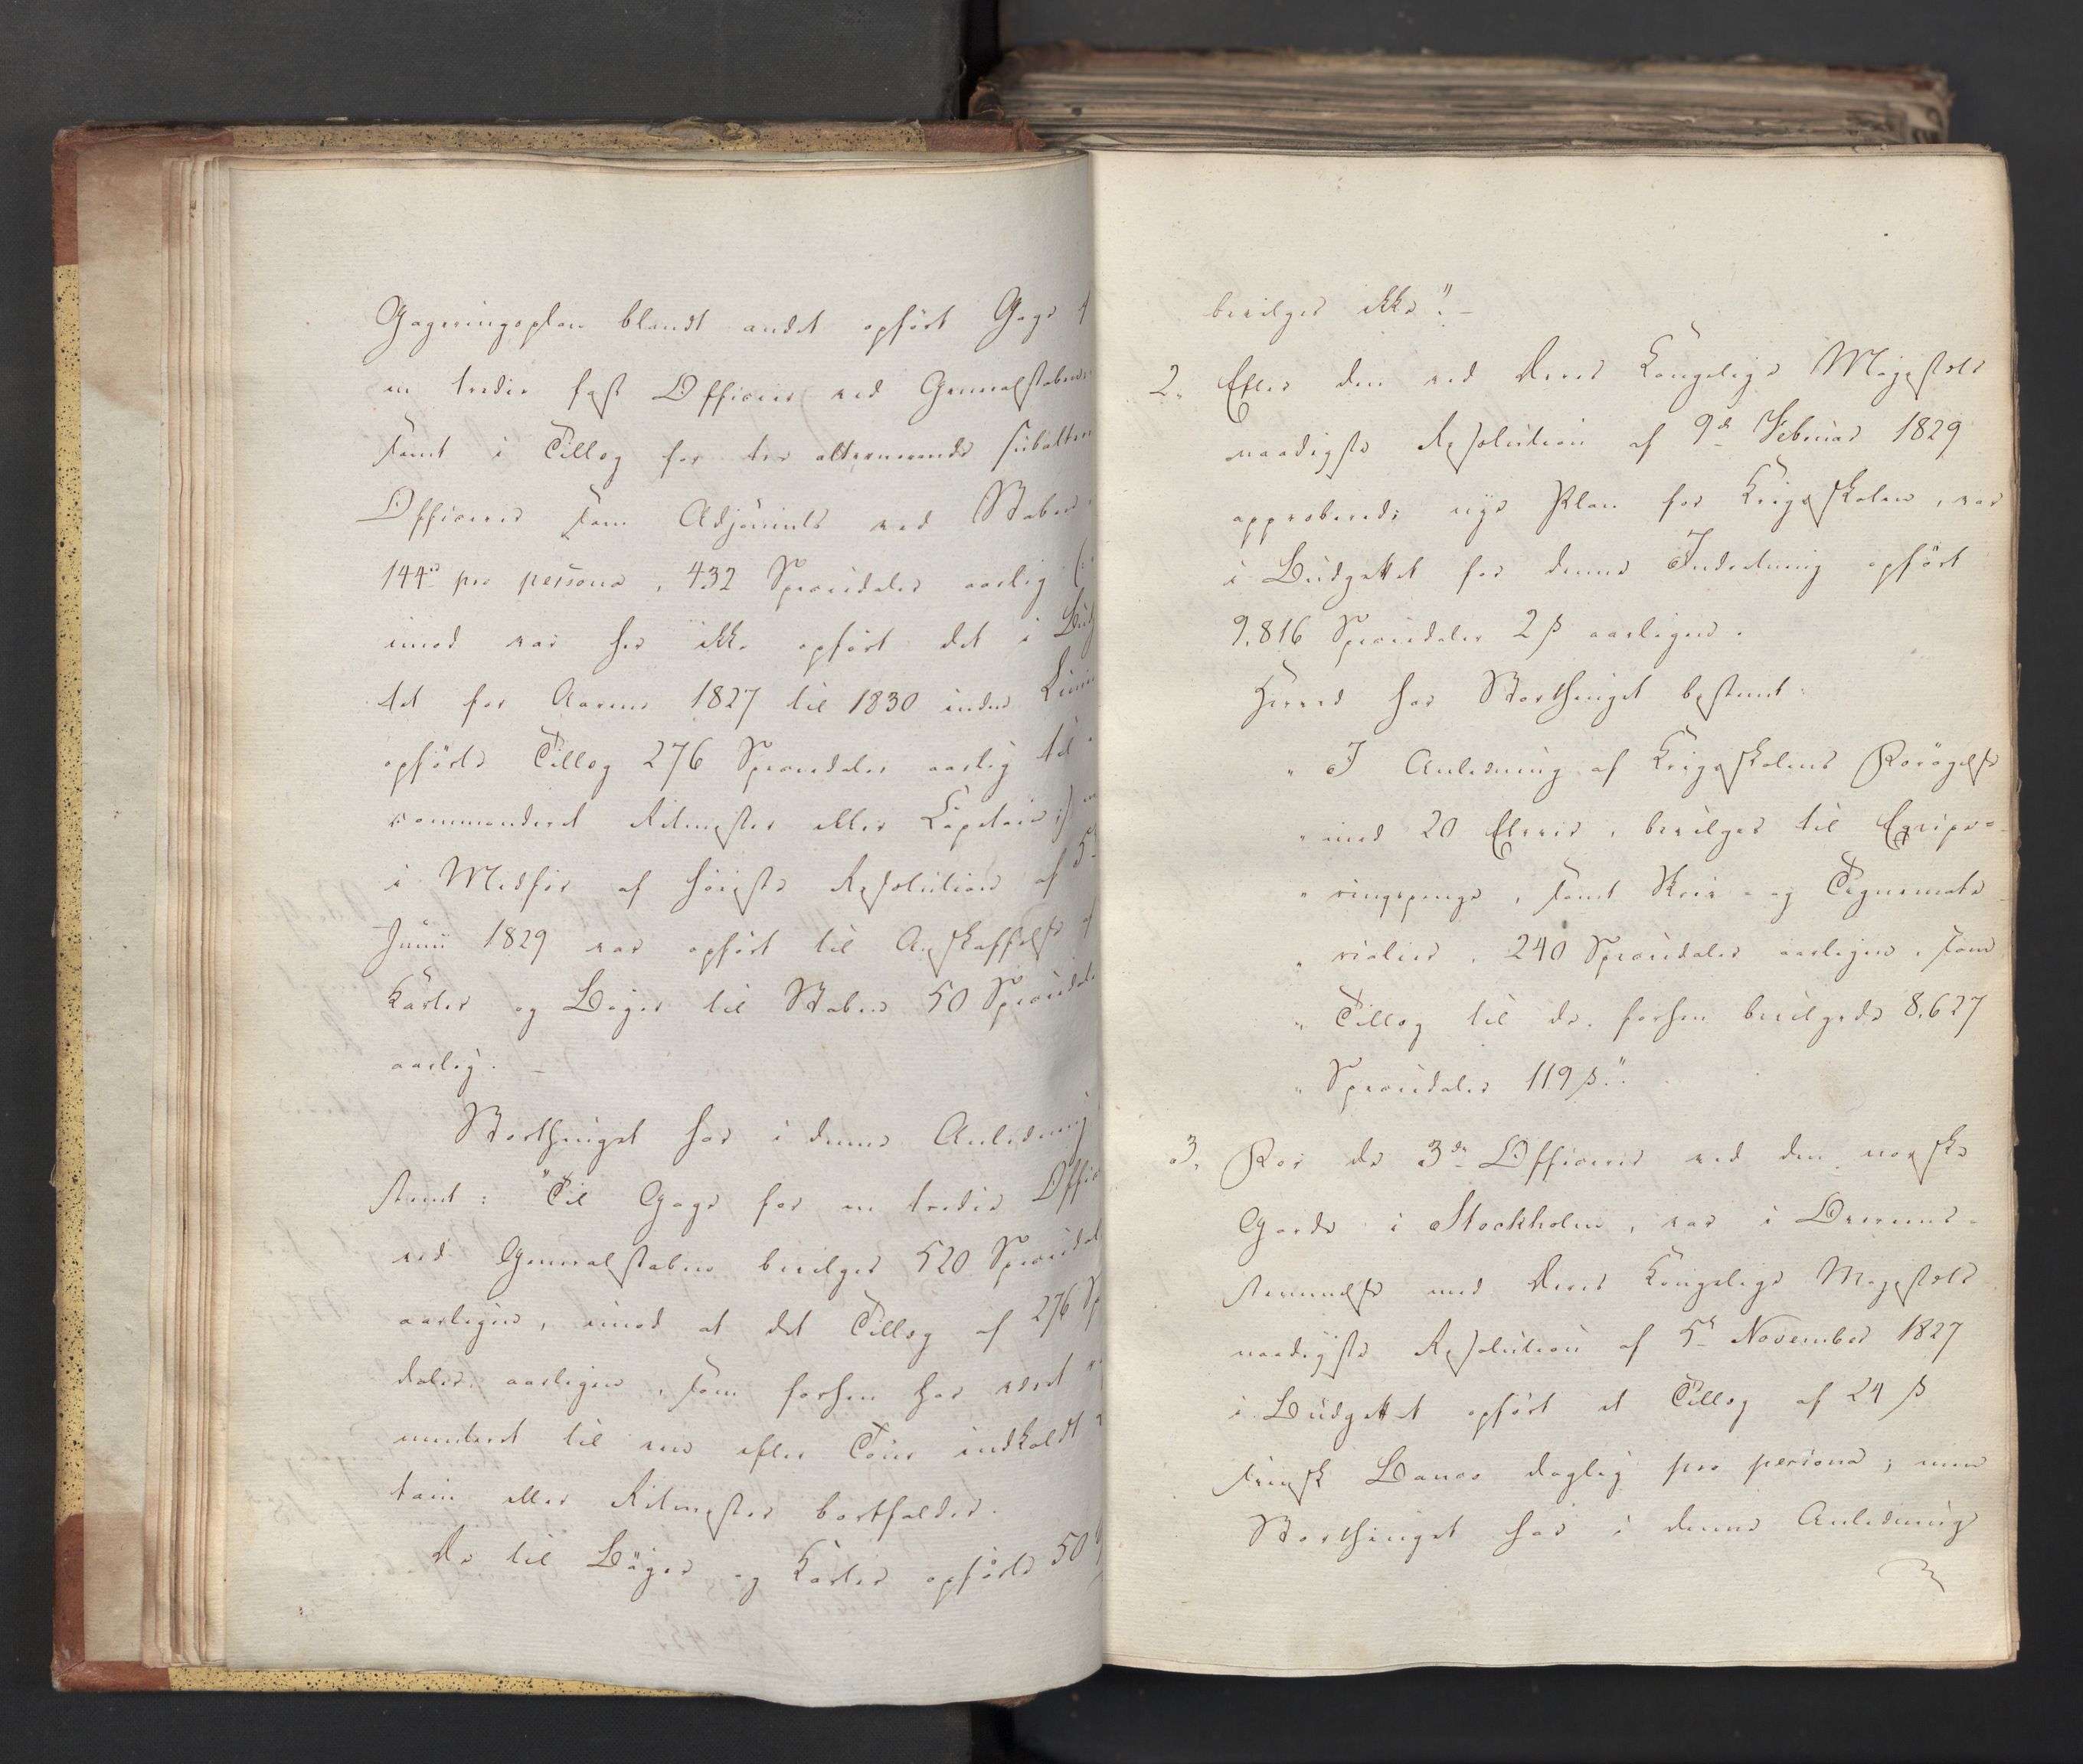 Gageringsplan blandt andet opført Gage
en tredie fast Officier ved Generalstaben
samt i Tillæg for tre alternerende subaltern
Officierer som Adjointer ved Staben
144 pro persona, 432 Speciedaler aarlig (:
imod var her ikke opført det i Bud
tet for Aarene 1827 til 1830 inder
opførte Tillæg 276 Speciedaler aarlig til
commanderet Ritmester eller Capitain :)
i Medfør af høieste Resolution af 5
Junii 1829 var opført til Anskaffelse af
Karter og Bøger til Staben 50 Speciedaler
aarlig. –
Storthinget har i denne Anledning
stemt: "Til Gage for en tredie Offici
ved Generalstaben bevilges 520 Speciedal
aarligen, imod at det Tillæg af 276 Sp
daler aarligen, som forhen har været
munderet til en efter Tour indkaldt
tain eller Ritmester bortfalder.
De til Bøger og Karter opførte 50
bevilges ikke". –
2. Efter den ved Deres Kongelige Majestæts
naadigste Resolution af 9de Februar 1829
approberede nye Plan for Krigsskolen, var
i Budgettet for denne Indretning opført
9,816 Speciedaler 2 ß aarligen.
Herved har Storthinget bestemt:
" I Anledning af Krigsskolens Forøgelse
" med 20 Elever, bevilges til Eqvipe-
" ringspenge, samt Skriv- og Tegnemate
" rialier, 240 Speciedaler aarligen, som
" Tillæg til de forhen bevilgede 8,627
" Speciedaler 119 ß."
3. For de 3de Officierer ved den norske
Garde i Stockholm, var i Overeens-
stemmelse med Deres Kongelige Majestæts
naadigste Resolution af 5te November 1827
i Budgettet opført et Tillæg af 24 ß
svensk Banco daglig pro persona; men
Storthinget har i denne Anledning